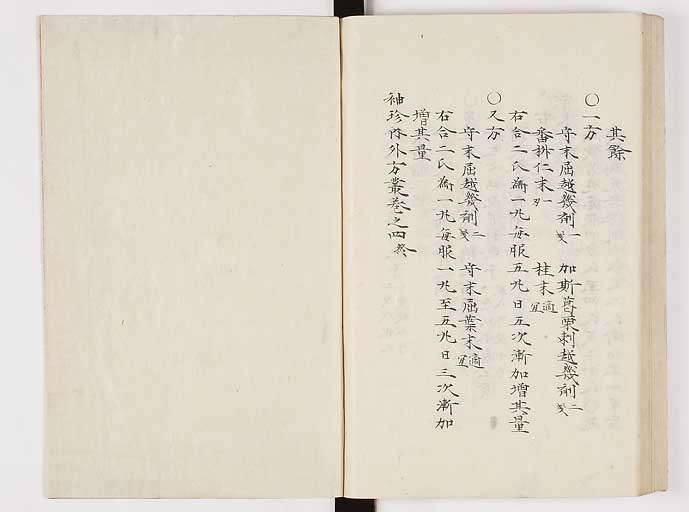 其餘
○一方
守末屈越幾剤一戔 加斯菖栗刺越幾剤二戔
番拼仁末一刄 桂末適宜
右合二氏為一丸每服五丸日五次漸加增其量
○又方
守末屈越幾剤二戔 守末屈葉末適宜
右合二氏為一丸每服一丸至五丸日三次漸加
增其量
袖珍内外方叢卷之四終